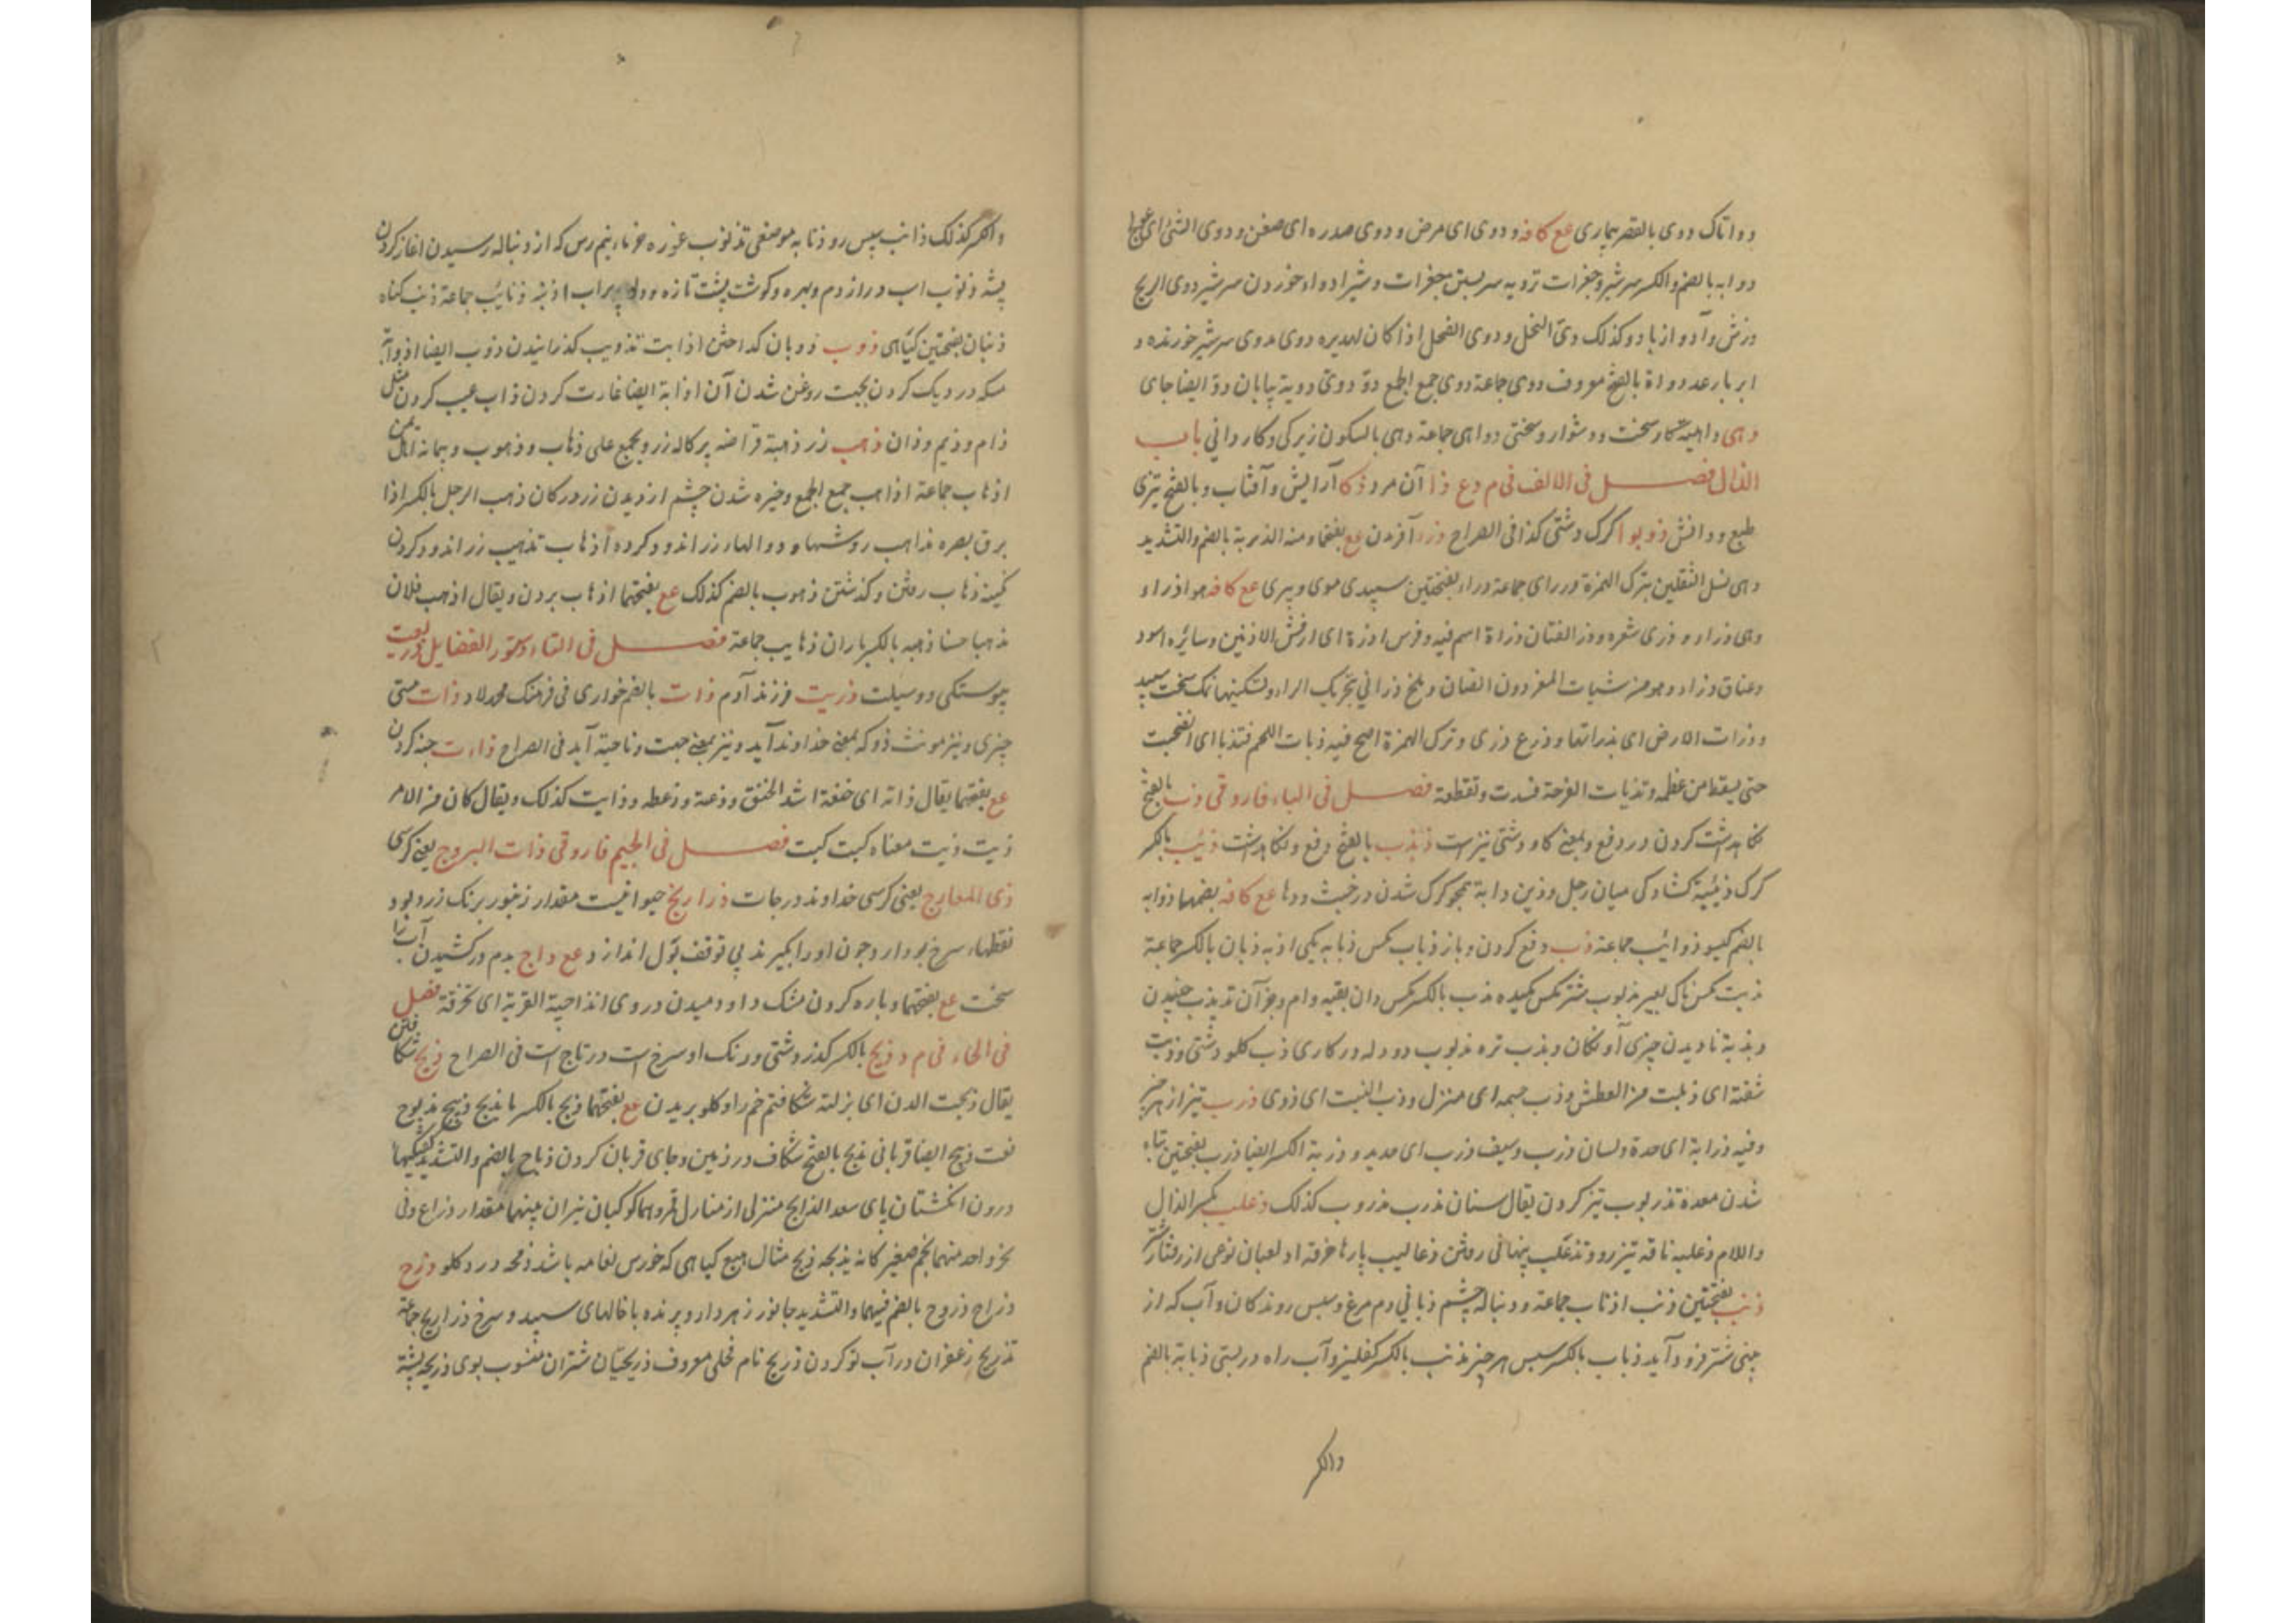 دواناک دوی بالقصر بیماری عع کافه و دوی ای مرض و دوی صدره ای صغن و دوی الشئ ای
دوابه بالضم والکسر سرشیر و جغرات تدویه سر بستن جغرات و شیر ادواء خوردن سرشیر دوی الریح
وزش و آواز باد و کذلک دوی النحل و دوی الفحل اذا کان لهدیره دوی مدوی سرشیر خورنده و
ابر با رعد دواة بالفتح معروف دوی جماعة دوی جمع الجمع دو دوی دویة بیابان دو ایضا جای
دهی داهیة کار سخت و دشوار و سختی دواهی جماعة دهی بالسکون زیرکی و کاردانی باب
الذال فصل فی الالف فی م دع ذا آن مرد ذکا آرایش و آفتاب و بالفتح تیزی
طبع و دانش ذوبوا کرک دشتی کذا فی الصراح ذرء آفریدن عع بفتحها و منه الذریة بالضم والتشدید
وهی نسل الثقلین بترک الهمزة ذراری جماعة ذراء بفتحتین سپیدی موی و پیری عع کافه هو اذراء
وهی ذراء و ذری شعره و ذرء الفتان ذراة اسم فیه و فرس اذرء ای ارقش الاذنین و سائره اسود
وعناق ذراء و هو من شیات المعز دون الضان و ملح ذرانی بتحریک الراء و تسکینها نمک سخت سپید
و ذرات الارض ای بذراتها و ذرع ذری و ترک الهمزة اصح فیه ذیات اللحم فتذیا ای انضجت
حتی یسقط من عظمه و تذیات القرحة فسدت و تقطعت فصل فی الباء فاروقی ذب بالفتح
نکاهداشت کردن و دفع و بمعنی کاو دشتی نیز است ذبذب بالفتح دفع و نکاهداشت ذئب بالکسر
کرک ذئبة کشادکی میان رجل و ذین دابة همچو کرک شدن در خبث و دها عع کافه بضمها ذوابه
بالضم کیسو ذوائب جماعة ذب دفع کردن و باز ذباب مکس ذبابه یکی اذبه ذبان بالکسر جماعة
ذبت مکس ناک بعیر مذبوب شتر مکس مکیده مذب بالکسر مکس ران بقیه وام و جز آن تذبذب جنبیدن
وبذبة نادیدن چیزی آونکان و بذب تره مذبوب دو دله در کاری ذب کاو دشتی و ذبت
شفته ای ذبلت من العطش و ذب جسمه ای هزل و ذب النبت ای ذوی ذرب تیز از هر چیز
وفیه ذرابة ای حدة و لسان ذرب و سیف ذرب ای حدید و ذربة الکسر ایضا ذرب بفتحتین تباه
شدن معدة تذریب تیز کردن یقال سنان مذرب مذروب کذلک ذعلب بکسر الذال
واللام ذعلبه ناقه تیز رو و تذعلب پنهانی رفتن ذعالیب پارها خرقه اذلعبان نوعی از رفتار شتر
ذنب بفتحتین ذنب اذناب جماعة و دنباله چشم ذنابی دم مرغ و سپس روندکان و آب که از
بینی شتر فرود آید ذناب بالکسر سپس هر چیز مذنب بالکسر کفلیز و آب راه در بستی ذنابة بالضم
والکسر
والکسر کذلک ذانب سپس رو ذنابه موضعی تذنوب غوره خرماء نیم رس که از دنباله رسیدن اغاز کردن
پشه ذنوب اسب دراز دم و بهره و کوشت پشت تازه و دلو پر اب اذنبه ذنائب جماعة ذنب کناه
ذنبان بفتحتین کیاهی ذوب ذوبان کداختن اذابت تذویب کذرانیدن ذوب ایضا اذوابه
مسکه در دیک کردن بجهت روغن شدن آن اذابة ایضا غارت کردن ذاب عیب کردن مثل
ذام و ذیم و ذان ذهب زر ذهبة قراضه پرکاله زر و یجمع علی ذهاب و ذهوب و پیمانه اهل یمن
اذهاب جماعة اذاهب جمع الجمع و خیره شدن چشم از دیدن زر در کان ذهب الرجل بالکسر اذا
برق بصره مذاهب روشها و دوالهاء زر اندود کرده اذهاب تذهیب زر اندود کردن
کمینه ذهاب رفتن و کذشتن ذهوب بالضم کذلک عع بفتحهما اذهاب بردن و یقال اذهب فلان
مذهبا حسنا ذهبه بالکسر باران ذهایب جماعة فصل فی التاء دستور الفضایل ذریعت
پیوستکی و وسیلت ذریت فرزند آدم ذات بالضم خواری فی فرهنک محمد لاد ذات هستی
چیزی و نیز مونث ذو که بمعنی خداوند آید و نیز بمعنی جهت و ناحیة آید فی الصراح ذاءت خبه کردن
عع بفتحهما یقال ذاته ای خنقه اشد الخنق و ذعته و ذعطه و ذایت کذلک و یقال کان من الامر
ذیت ذیت معناه کیت کیت فصل فی الجیم فاروقی ذات البروج یعنی کرسی
ذی المعارج یعنی کرسی خداوند درجات ذراریح حیوانیست مقدار زنبور برنک زرد بود و
نقطهاء سرخ بود دارد چون او را بکیرند بی توقف بول اندازد عع داج بدم در کشیدن آب را
سخت عع بفتحهما و پاره کردن مشک و اودمیدن در وی انذاجیة القربة ای تخرقة فصل
فی الحاء فی م ذبح بالکسر کذر دشتی و رنک او سرخ است در تاج است فی الصراح ذبح شکافتن
یقال ذبحت الدن ای بزلته شکافتم خم را و کلو بریدن عع بفتحهما ذبح بالکسر ما یذبح ذبیح مذبوح
نعت ذبیح ایضا قربانی مذبح بالفتح شکاف در زمین و جای قربان کردن ذباح بالضم والتشدید
درون انکشتان پای سعد الذابح منزلی از منازل قمر و هما کوکبان نیران بینهما مقدار ذراع و فی
نحر واحد منهما نجم صغیر کانه یذبحه ذبح مثال هبع کیاهی که خورش نعامه باشد ذبحه درد کلو ذرح
ذراح ذروح بالضم فیهما والتشدید جانور زهر دار و پرنده با خالهای سپید و سرخ ذراریح جماعة
تذریح زعفران در آب نو کردن ذریح نام فحلی معروف ذریحیان شتران منسوب بوی ذریحه پشته